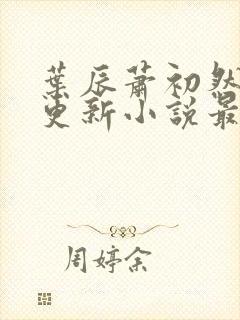 葉辰蕭初然
更新小說最
周婷余